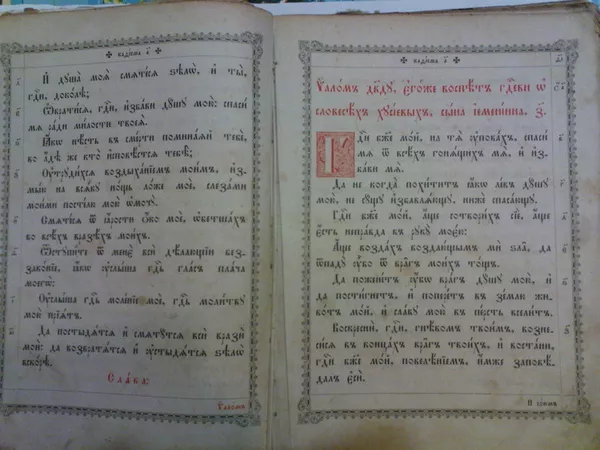 ✠ каѳі́сма а҃ ✠
И҆ дꙋша̀ моѧ̀ смѧте́сѧ ѕѣлѡ̀, и҆ ты̀,
гдⷭ҇и, доко́лѣ;
Ѡ҆брати́сѧ, гдⷭ҇и, и҆зба́ви дꙋ́шꙋ мою̀: спаси́
мѧ ра́ди ми́лости твоеѧ̀.
Ꙗ҆́кѡ нѣ́сть въ сме́рти помина́ѧй тебѐ,
во а҆́дѣ же кто̀ и҆сповѣ́стсѧ тебѣ̀;
Оу҆трꙋди́хсѧ воздыха́нїемъ мои́мъ, и҆з-
мы́ю на всѧ́кꙋ но́щь ло́же моѐ, слеза́ми
мои́ми посте́лю мою̀ ѡ҆мочꙋ̀.
Смѧте́сѧ ѿ ꙗ҆́рости ѻ҆́ко моѐ, ѡ҆бетша́хъ
во всѣ́хъ вразѣ́хъ мои́хъ.
Ѿстꙋпи́те ѿ менє̀ всѝ дѣ́лающїи без-
зако́нїе, ꙗ҆́кѡ оу҆слы́ша гдⷭ҇ь гла́съ пла́ча
моегѡ̀:
Оу҆слы́ша гдⷭ҇ь моле́нїе моѐ, гдⷭ҇ь моли́твꙋ
мою̀ прїѧ́тъ.
Да постыдѧ́тсѧ и҆ смѧтꙋ́тсѧ всѝ вразѝ
мои̑: да возвратѧ́тсѧ и҆ оу҆стыдѧ́тсѧ ѕѣлѡ̀
вско́рѣ.
Сла́ва:
Ѱало́мъ
✠ каѳі́сма а҃ ✠
Ѱало́мъ дв҃дꙋ, є҆го́же воспѣ́тъ гдⷭ҇еви ѡ҆
словесѣ́хъ хꙋсі́евыхъ, сы́на і҆емені́ина. з҃.
Гдⷭ҇и бж҃е мо́й, на тѧ̀ оу҆пова́хъ, спаси́
мѧ ѿ всѣ́хъ гонѧ́щихъ мѧ̀, и҆ и҆з-
ба́ви мѧ̀.
Да не когда̀ похи́титъ ꙗ҆́кѡ ле́въ дꙋ́шꙋ
мою̀, не сꙋ́щꙋ и҆збавлѧ́ющꙋ, нижѐ спаса́ющꙋ.
Гдⷭ҇и бж҃е мо́й, а҆́ще сотвори́хъ сїѐ, а҆́ще
є҆́сть непра́вда въ рꙋкꙋ̀ моє́ю:
А҆́ще возда́хъ воздаю́щымъ мѝ ѕла̑, да
ѿпадꙋ̀ оу҆̀бо ѿ вра̑гъ мои́хъ то́щъ.
Да пожене́тъ оу҆̀бо вра́гъ дꙋ́шꙋ мою̀, и҆
да пости́гнетъ, и҆ попере́тъ въ зе́млю жи-
во́тъ мо́й, и҆ сла́вꙋ мою̀ въ пе́рсть всели́тъ.
Воскрⷭ҇нѝ, гдⷭ҇и, гнѣ́вомъ твои́мъ, вознеси́-
сѧ въ конца́хъ вра̑гъ твои́хъ, и҆ воста́ни,
гдⷭ҇и бж҃е мо́й, повелѣ́нїемъ, и҆́мже заповѣ́-
далъ є҆сѝ.
И҆ со́нмъ